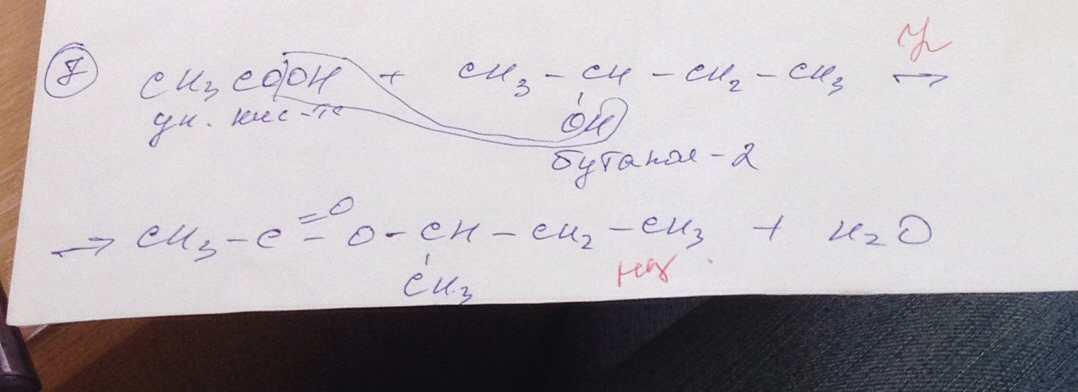 7
CH₃COOH + CH₃ - CH - CH₂ - CH₃ →
ук. кис-та OH
бутанол-2
→ CH₃ - C = O - O - CH - CH₂ - CH₃ + H₂O
CH₃